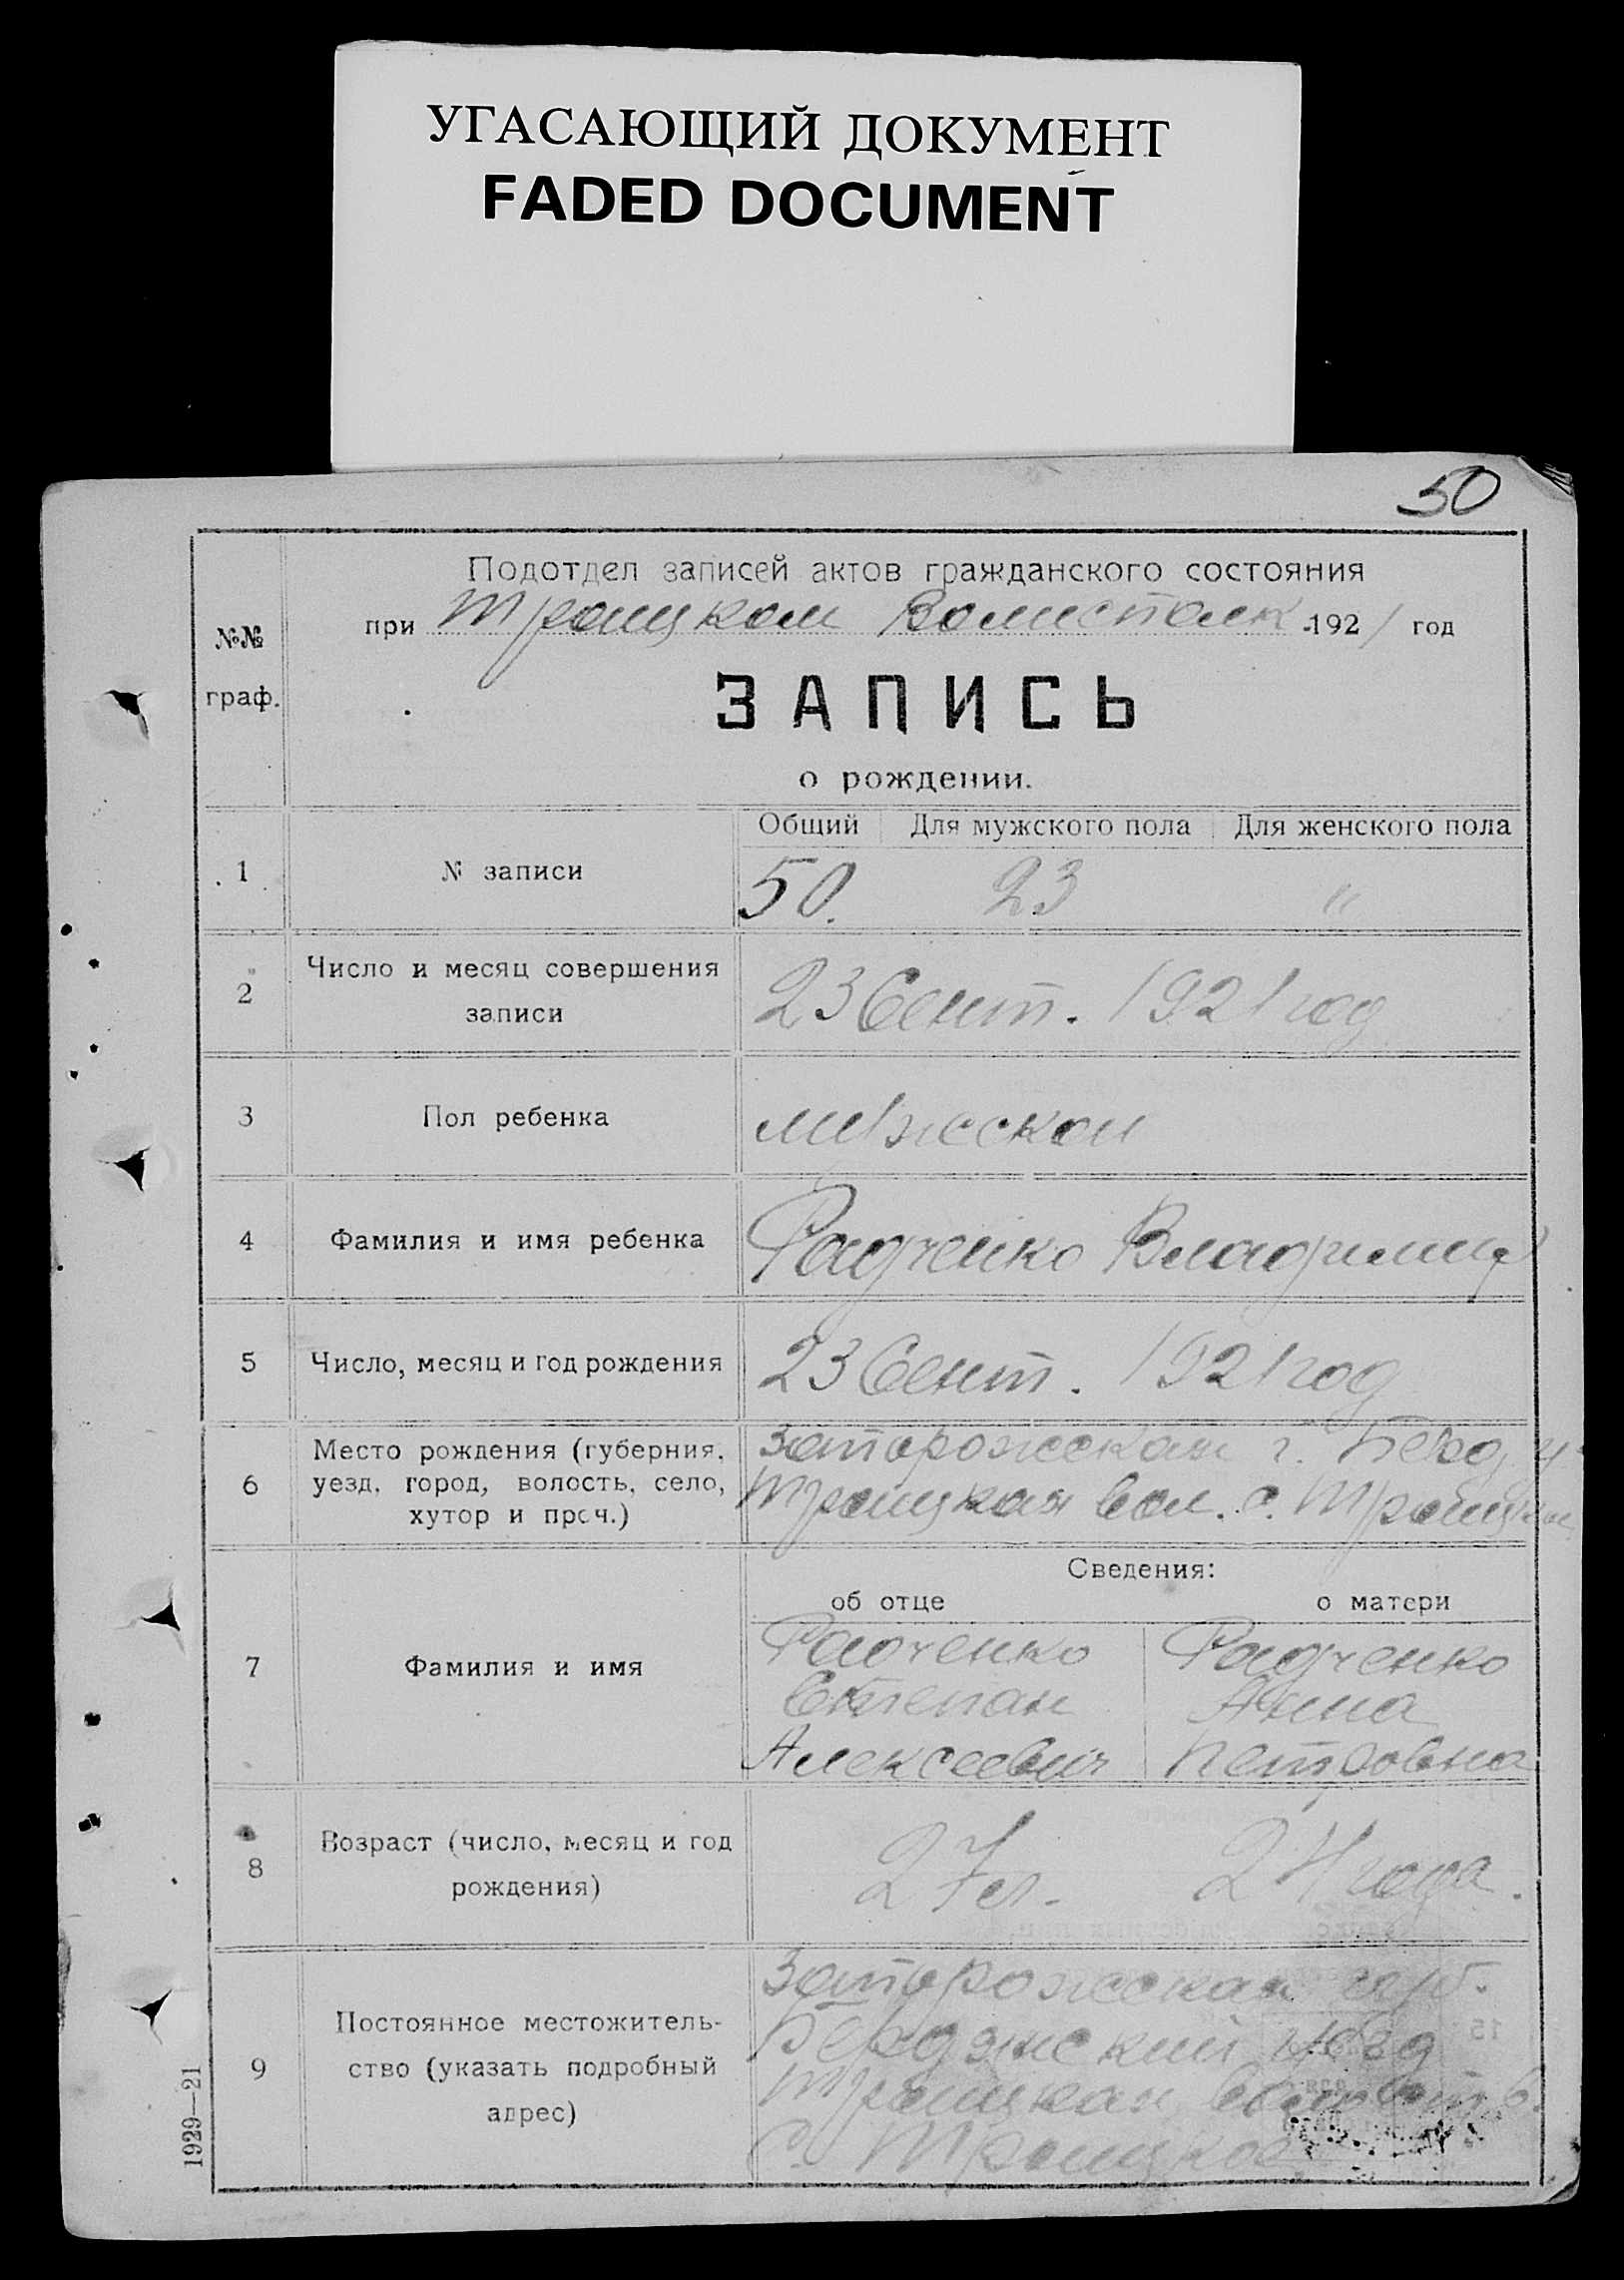 УГАСАЮЩИЙ ДОКУМЕНТ
FADED DOCUMENT
50
Подотдел записей актов гражданского состояния
при Троицком Волисполк 1921 год
№№
граф.
ЗАПИСЬ
о рождении.
Общий Для мужского пола Для женского пола
1 № записи 50. 23 "
2 Число и месяц совершения
записи
23 Сент. 1921 год
3 Пол ребенка мужской
4 Фамилия и имя ребенка Радченко Владимир
5 Число, месяц и год рождения 23 Сент. 1921 год
6 Место рождения (губерния,
уезд, город, волость, село,
хутор и проч.)
Запорожская г. Берд. у
Троицкая вол. с. Троицкое
Сведения:
об отце о матери
7 Фамилия и имя
Радченко Радченко
Степан Анна
Алексеевич Петровна
8 Возраст (число, месяц и год
рождения)
27 л. 24 года.
9 Постоянное местожитель-
ство (указать подробный
адрес)
Запорожская губ.
Бердянский уезд
Троицкая волость
с. Троицкое
1929—21